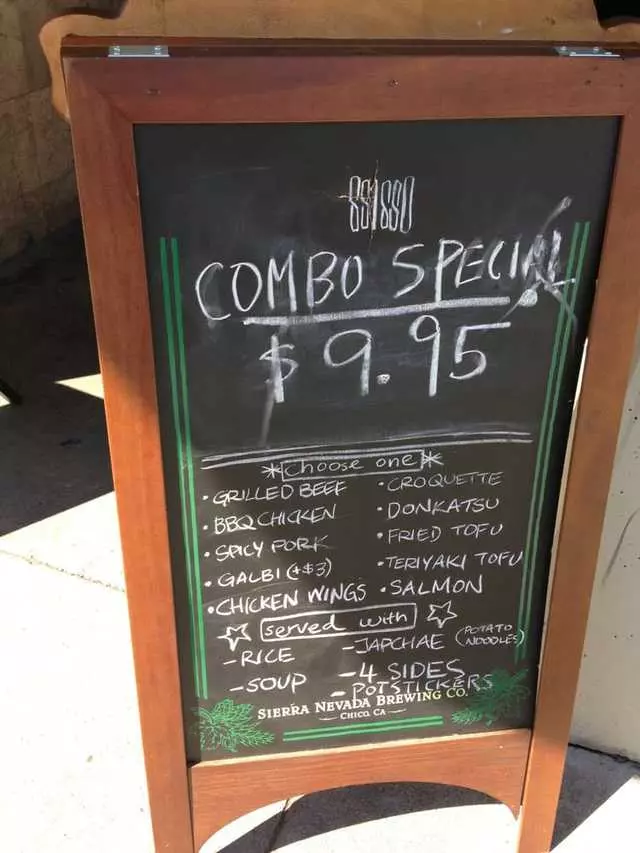 COMBO SPECIAL
$9.95
*choose one*
• GRILLED BEEF
• BBQ CHICKEN
• SPICY PORK
• GALBI (+$3)
• CHICKEN WINGS
• CROQUETTE
• DONKATSU
• FRIED TOFU
• TERIYAKI TOFU
• SALMON
☆ served with ☆
- RICE
- SOUP
- JAPCHAE (POTATO NOODLES)
- 4 SIDES
- POTSTICKERS
SIERRA NEVADA BREWING CO.
CHICO, CA